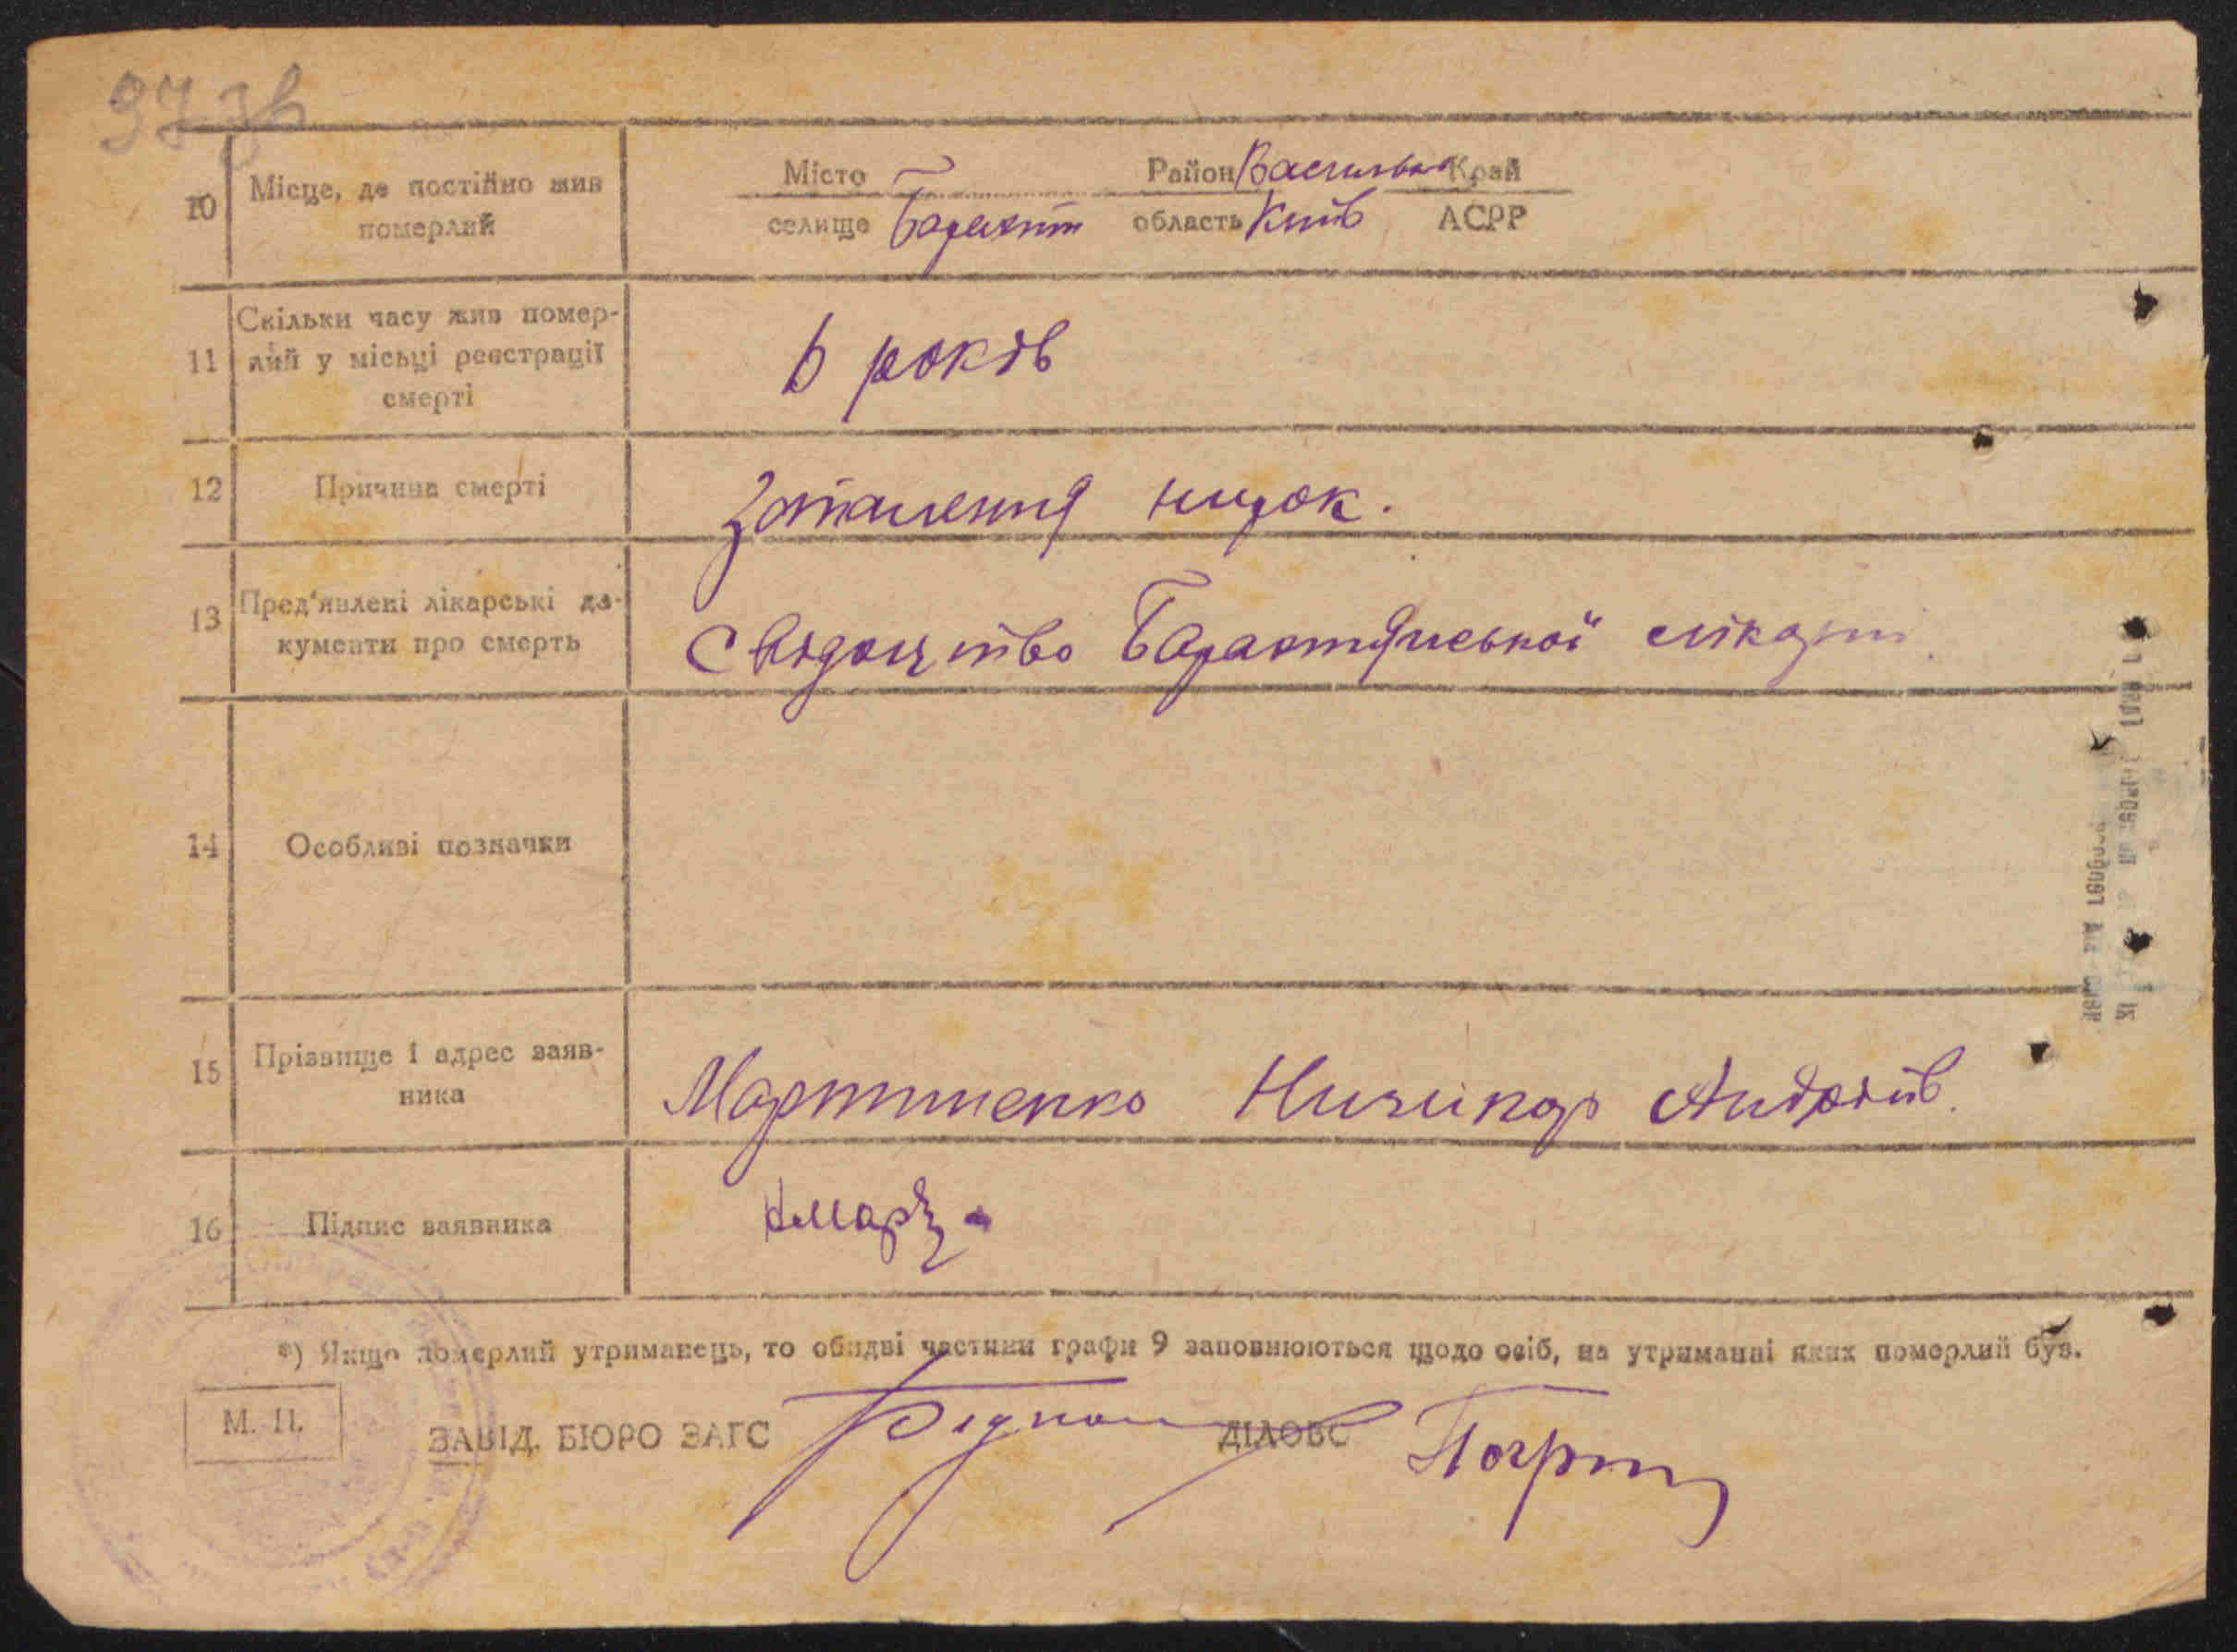 97 зв
Місто Район Васильк Край
10 Місце, де постійно жив
померлий
селище Барахти область Київ АСРР
11 Скільки часу жив помер-
лий у місьці реєстрації
смерті
6 років
12 Причина смерті Запалення нирок.
13 Пред'явлені лікарські до-
кументи про смерть
Свідоцтво Барахтянської лікарні
14 Особливі позначки
15 Прізвище і адрес заяв-
ника
Мартиненко Ничипор Андріїв.
16 Підпис заявника
*) Якщо померлий утриманець, то обидві частини графи 9 заповнюються щодо осіб, на утриманні яких померлий був.
М. П.
ЗАВІД. БЮРО ЗАГС ДІЛОВС